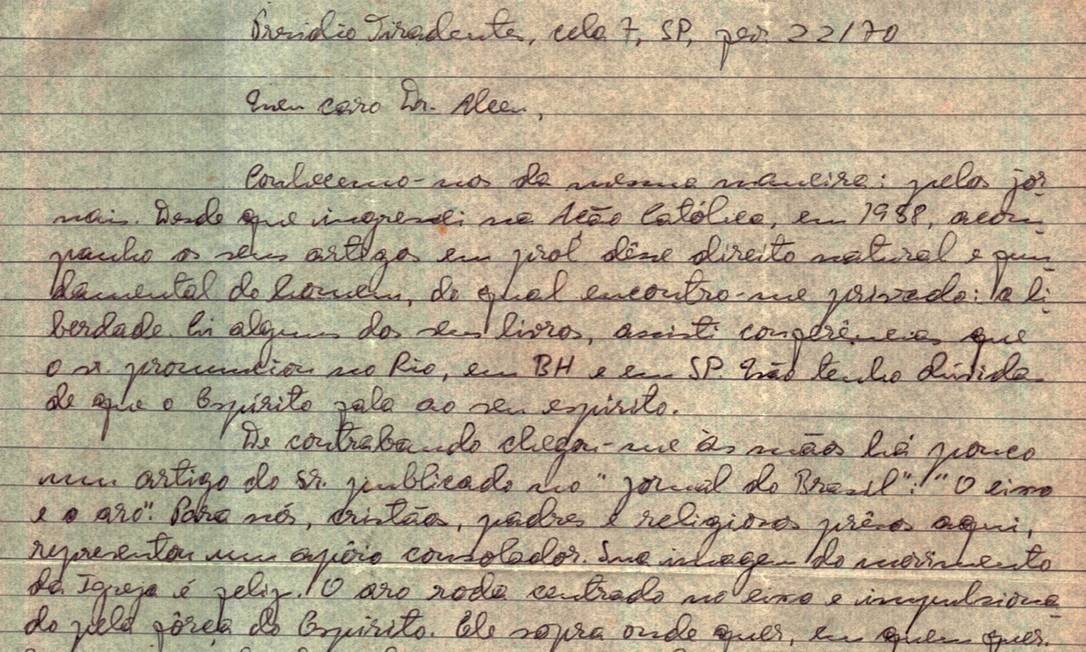 Presídio Tiradentes, cela 7, SP, fev. 22/70
Meu caro Dr. Alceu,
Conhecemo-nos da mesma maneira: pelos jor-
nais. Desde que ingressei na Ação Católica, em 1958, acom-
panho os seus artigos em prol dêsse direito natural e fun-
damental do homem, do qual encontro-me privado: a li-
berdade. Li alguns dos seus livros, assisti conferências que
o sr. pronunciou no Rio, em BH e em SP. Não tenho dúvida
de que o Espírito fala ao seu espírito.
De contrabando chegou-me às mãos há pouco
um artigo do sr. publicado no "Jornal do Brasil": "O eixo
e o aro". Para nós, cristãos, padres e religiosos prêsos aqui,
representou um apôio consolador. Sua imagem do movimento
da Igreja é feliz. O aro roda centrado no eixo e impulsiona-
do pela fôrça do Espírito. Ele sopra onde quer, em quem quer.